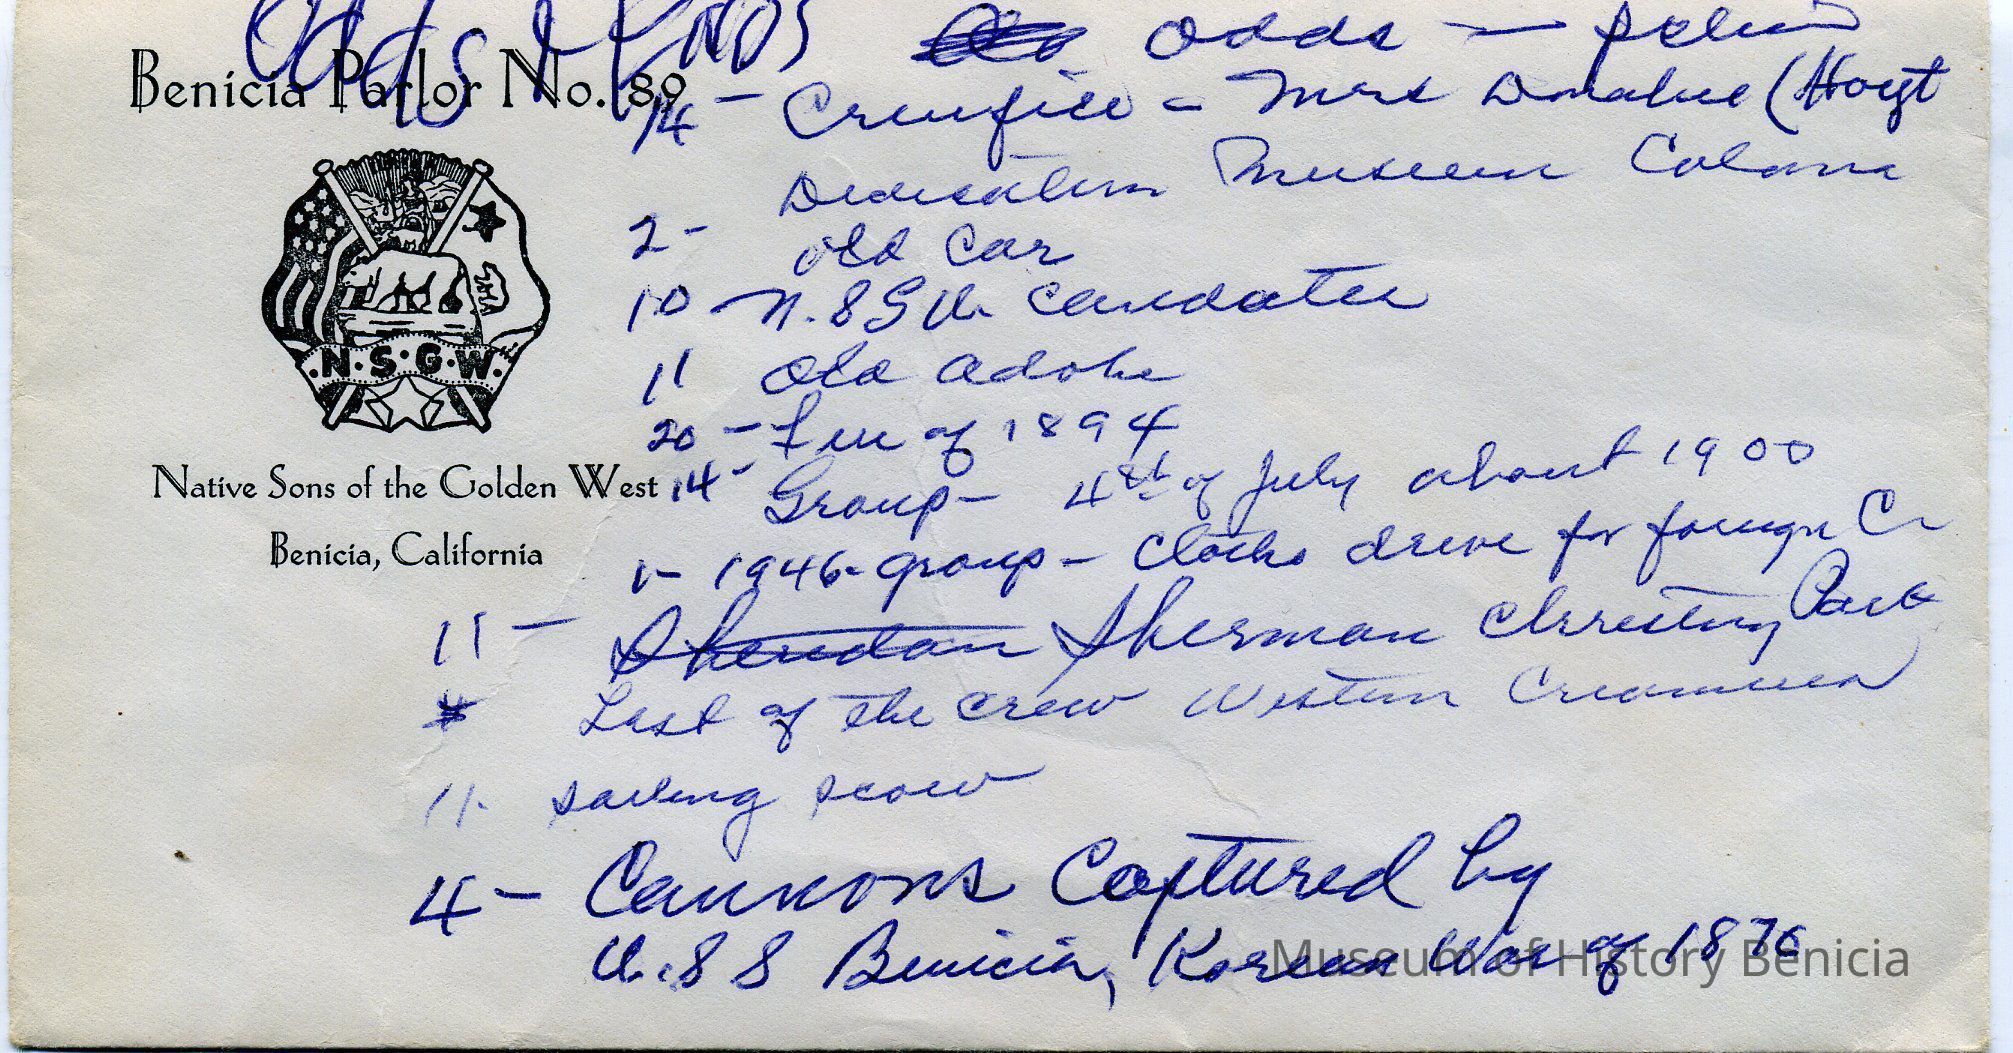 Odds &
odds —
Benicia Parlor No. 89
14 — Crucifix - Mrs Donahue (Hoyt
Dedication Museum Coloma
2 - Old Car
10 - N.S G W. Candates
N.S.G.W.
11 Old Adobe
20 - Fire of 1894
Native Sons of the Golden West
14 - Group - 4th of July about 1900
Benicia, California
1 - 1946 - group - Clothes drive for foreign
11 — Sheridan Sherman Park
Last of the crew Western Creameries
11. sailing scow
4 - Cannons Captured by
U.S S Benicia, Korean War of 1870
Museum of History Benicia